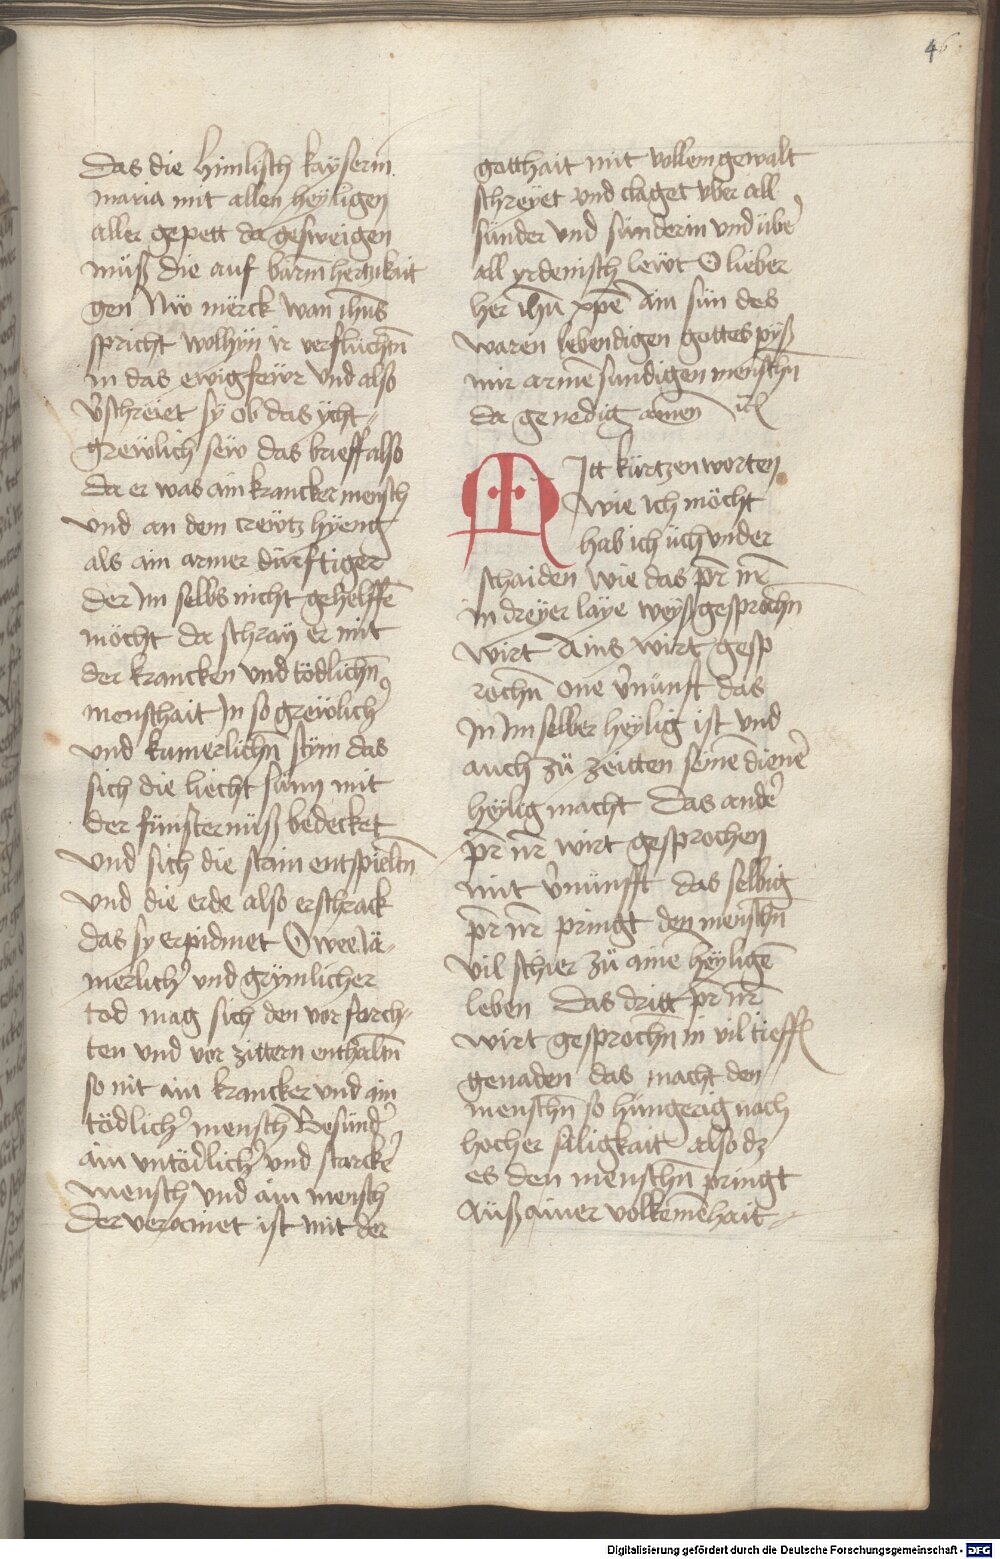 46
Das die himlisch kayserin
maria mit allen heyligen
aller gepett da gesweigen
müß die auf barmhertzikait
gen Nw mërck wan ihūs
spricht wolhyn ir verfluchtn̄
in das ewig fewr Vnd also
v̓schreiet sy ob das ÿcht
grewlich sew das brieff also
Da er was ain krancker mensch
vnd an dem crewtz hyeng
als ain armer dürftiger
der Im selbs nicht gehelffē
möcht da schray er mit
der krancken vnd tödlichn̄
menschait In so grewlich̓
vnd kumerlichn̄ stym das
sich die liecht sünn mit
der fünsternüß bedecket
vnd sich die stain entspieltn̄
vnd die erde also erschrack
das sy erpidmet O wee Jä-
merlich̓ vnd grymlicher
tod mag sich den vor forch-
ten vnd vor zittern enthaltn̄
so nit ain krancker vnd ain
tödlich̓ mensch Besünd̓
ain vntödlich̓ vnd starck̓
mensch vnd ain mensch
der verainet ist mit der
gotthait mit vollem gewalt
schreyet vnd claget vber all
sünder vnd sünderin vnd übe̓
all yrdenisch lewt O lieber
her ihū xpē ain sün des
waren lebendigen gottes pyß
mir armē sundigen menschn̄
da genedig amen
MItt kürtzen worten
wie ich möcht
hab ich üch vnder
schaiden wie das pr̄ nr̄
in dreyer laye weyß gesprochn
wirt Ains wirt gesp
rochn̄ one v̓nünft das
In Im selber heylig ist vnd
auch zü zeitten seinē diene̓
heylig macht Das ande̓
pr̄ nr̄ wirt gesprochen
mit v̓nünfft das selbig
pr̄ nr̄ pringt den menschn̄
vil schier zü ainē heyligē
leben Das dritt pr̄ nr̄
wirt gesprochn̄ in vil tieff
genaden das macht den
menschn̄ so hungerig nach
hocher säligkait also dz
es den menschn̄ pringt
Auß ainer volkemēhait
Digitalisierung gefördert durch die Deutsche Forschungsgemeinschaft - DFG